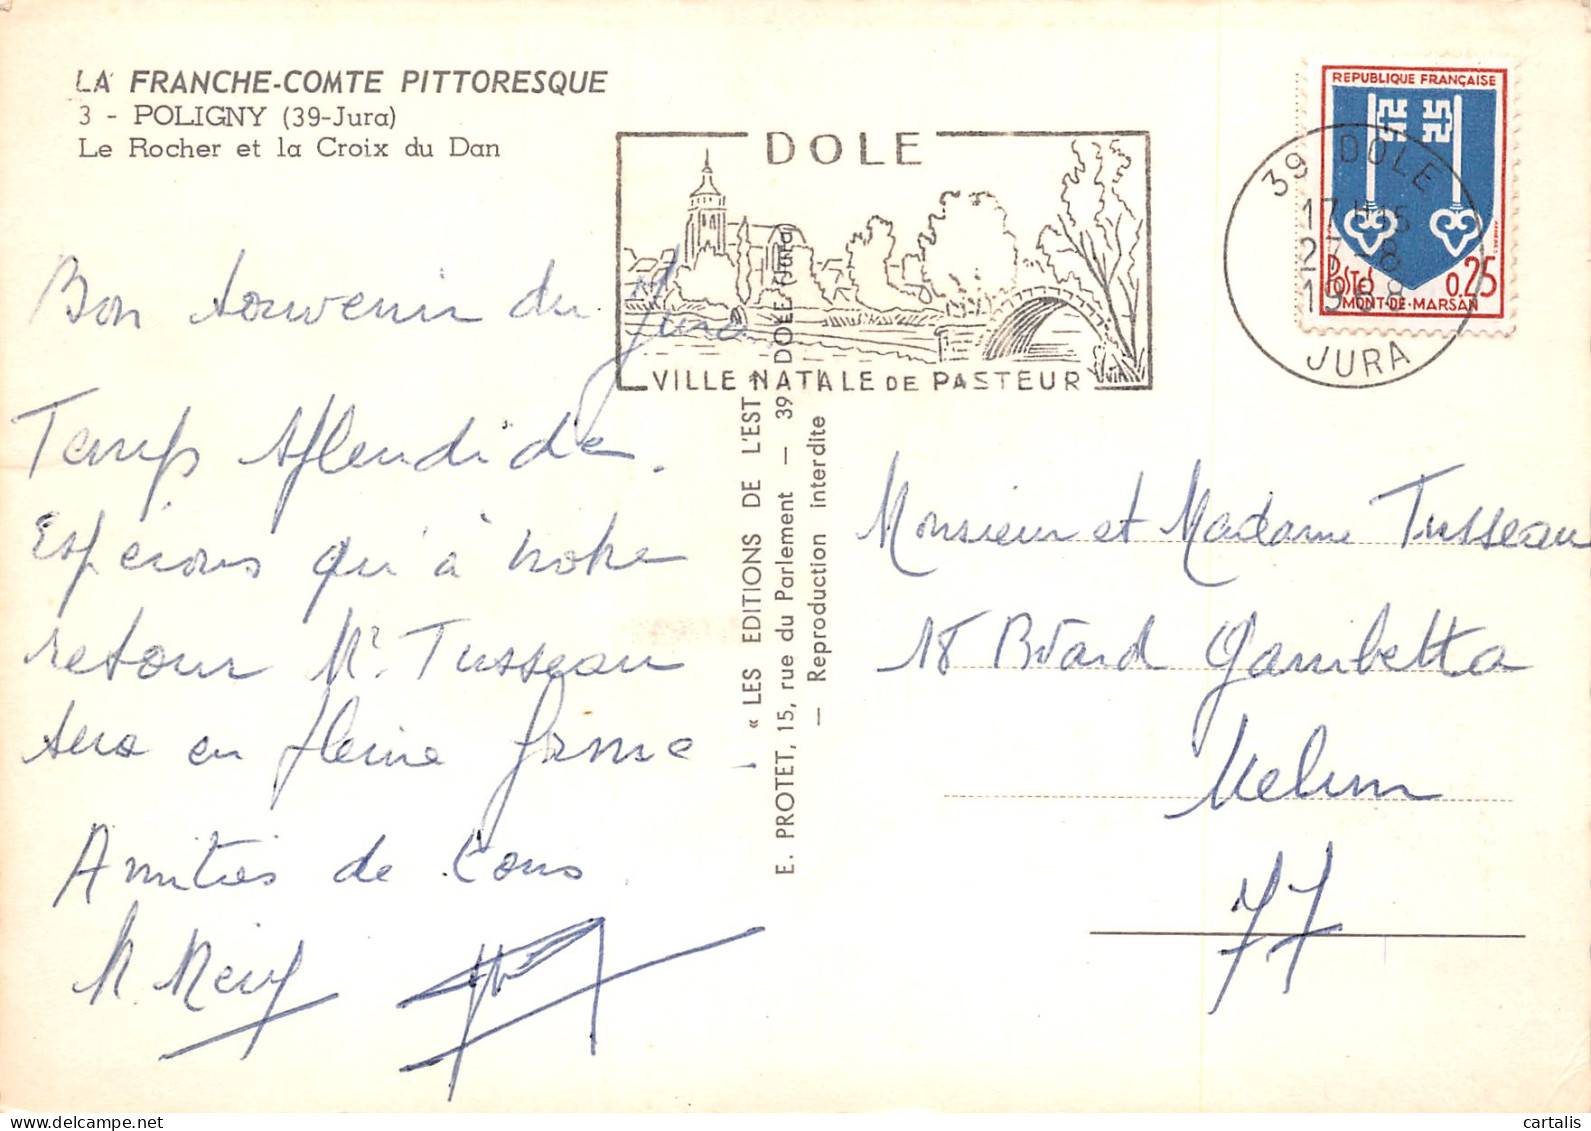 LA FRANCHE-COMTE PITTORESQUE
3 - POLIGNY (39-Jura)
Le Rocher et la Croix du Dan
DOLE
VILLE NATALE DE PASTEUR
REPUBLIQUE FRANÇAISE
POSTES 0,25
MONT-DE-MARSAN
39 DOLE
17H15
27-8
1968
JURA
Bon souvenir du
Jura
Temps splendide.
Espérons qu'à notre
retour Mr Tusseau
sera en pleine forme
Amitiés de tous
« LES EDITIONS DE L'EST
E. PROTET, 15, rue du Parlement — 39 DOLE (Jura)
— Reproduction interdite
Monsieur et Madame Tusseau
18 Bvard Gambetta
Melun
77
cartalis